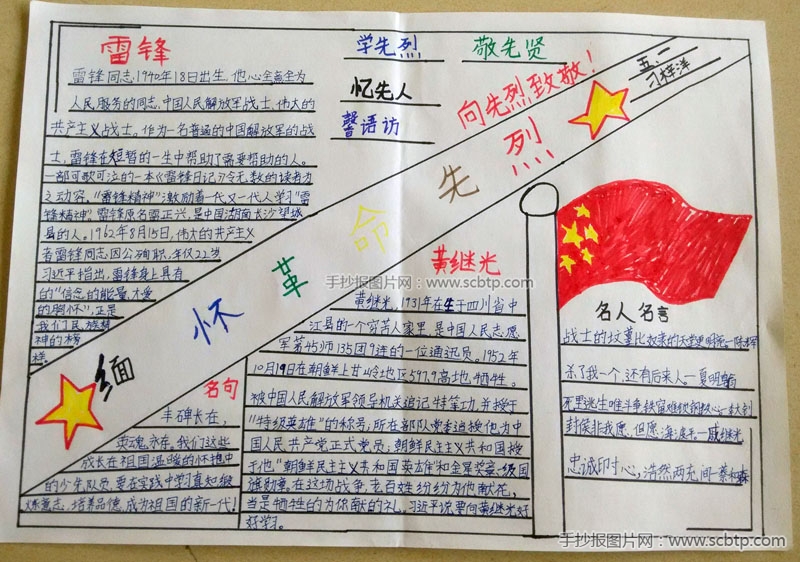 雷锋
雷锋同志,1940年18日出生,他心全意为
人民服务的同志,中国人民解放军战士,伟大的
共产主义战士。作为一名普通的中国解放军的战
士,雷锋在短暂的一生中帮助了需要帮助的人。
一部可歌可泣的一本《雷锋日记》令无数的读者为
之动容。"雷锋精神"激励着一代又一代人学习"雷
锋精神"。雷锋原名雷正兴,是中国湖南长沙望城
县的人。1962年8月15日,伟大的共产主义
者雷锋同志因公殉职,年仅22岁
习近平指出,雷锋身上具有
的"信念的能量,大爱
的胸怀",正是
我们民族精
神的榜
样。
学先烈
敬先贤
忆先人
馨语访
向先烈致敬!
五.一
刁梓洋
缅怀革命先烈
手抄报图片网:www.scbtp.com
黄继光
黄继光,1931年在生于四川省中
江县的一个穷苦人家里,是中国人民志愿
军第45师135团9连的一位通讯员。1952年
10月19日在朝鲜上甘岭地区597.9高地,牺牲。
被中国人民解放军领导机关追记特等功,并授于
"特级英雄"的称号;所在部队党委追授他为中
国人民共产党正式党员;朝鲜民主主义共和国授
于他"朝鲜民主主义共和国英雄"和金星奖章、一级国
旗勋章。在这场战争,老百姓纷纷为他献花,
当是牺牲的为你献的礼,习近平说:要向黄继光好
好学习。
名人名言
战士的坟墓比奴隶的天堂更明亮。一陈辉
杀了我一个,还有后来人。一夏明翰
死里逃生唯斗争,铁窗难锁钢铁心一李大钊
封侯非我愿,但愿海波平。一戚继光
忠诚印寸心,浩然两充间一蔡和森
名句
丰碑长在,
英魂亦存。我们这些
成长在祖国温暖的怀抱中
的少先队员,要在实践中学习真知,锻
炼意志,培养品德,成为祖国的新一代!
手抄报图片网:www.scbtp.com